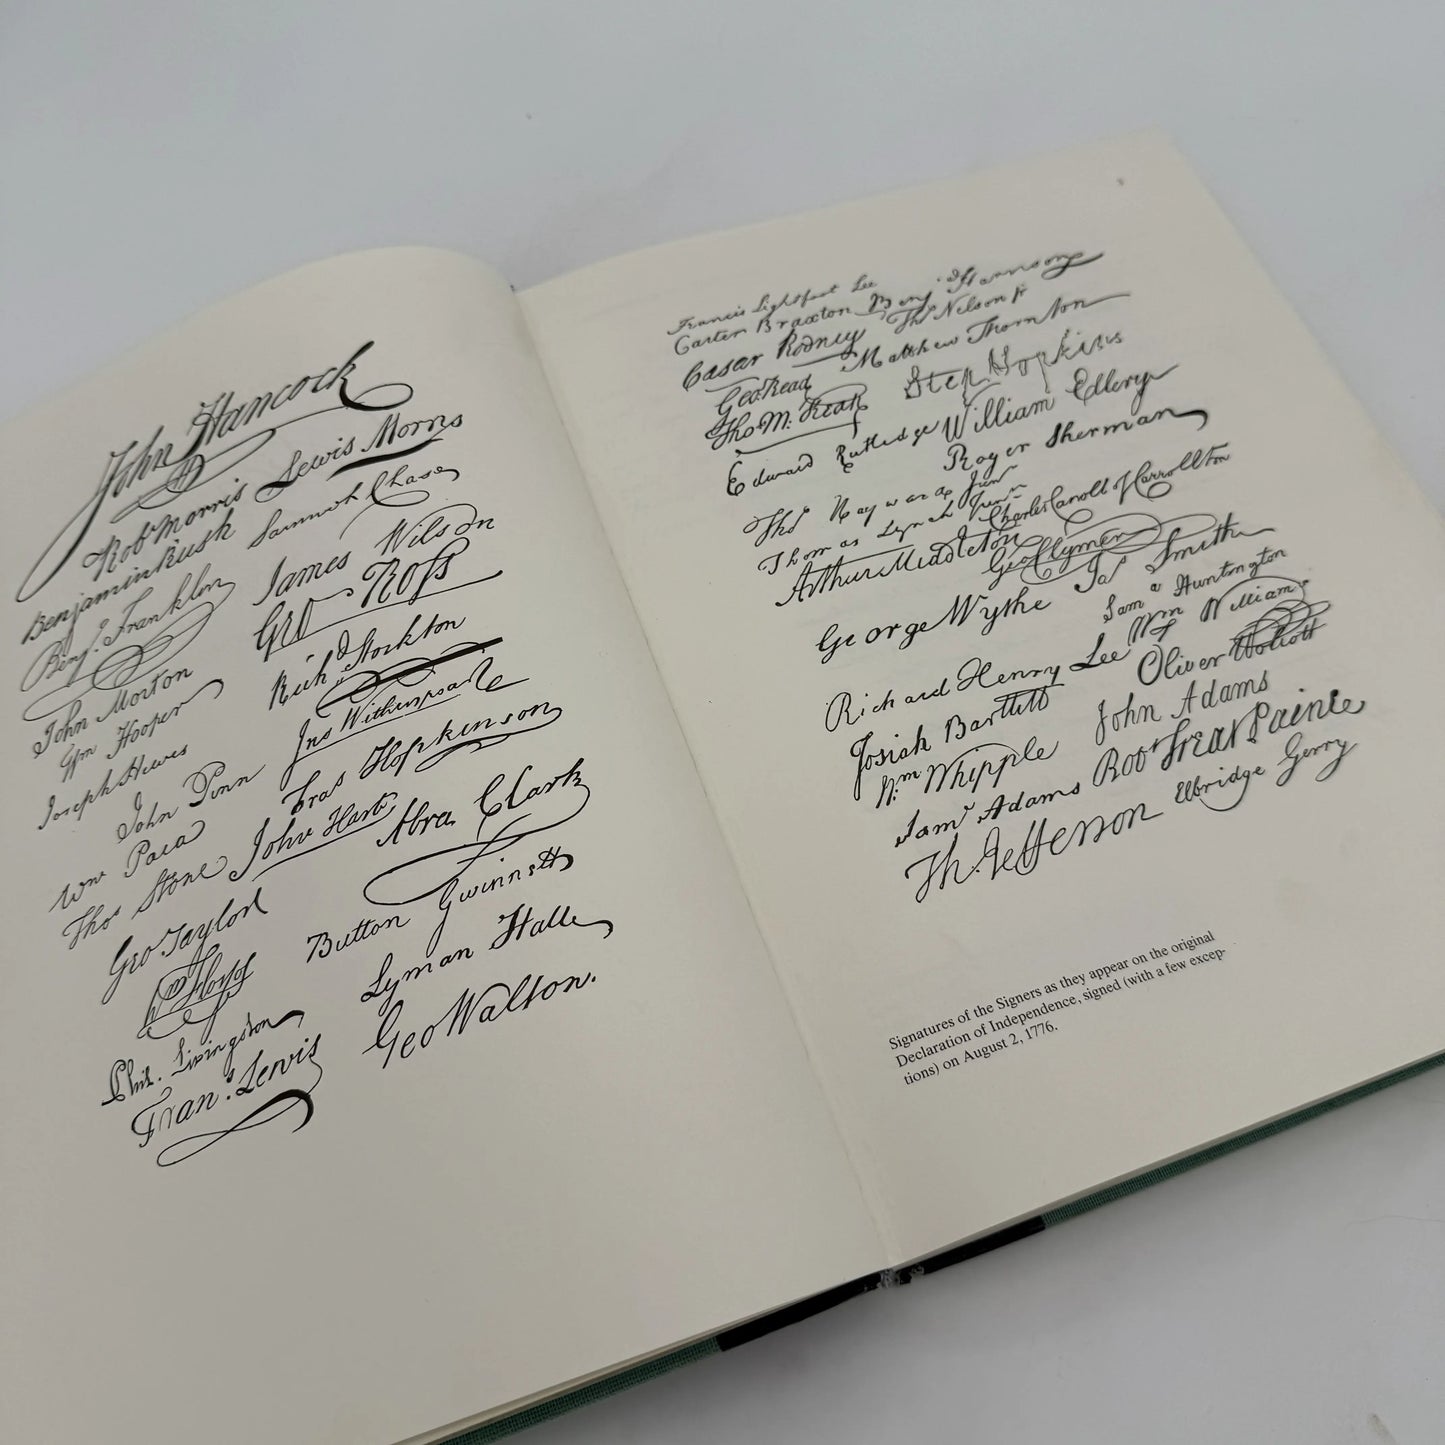 John Hancock
Robt Morris
Lewis Morris
Benjamin Rush
Samuel Chase
Benj. Franklin
James Wilson
John Morton
Geo Ross
Wm Hooper
Richd Stockton
Joseph Hewes
Jno Witherspoon
John Penn
Fras Hopkinson
Wm Paca
John Hart
Thos Stone
Abra Clark
Geo. Taylor
Button Gwinnett
Wm Floyd
Lyman Hall
Phil. Livingston
Geo Walton.
Frans. Lewis
Francis Lightfoot Lee
Carter Braxton
Benj Harrison
Cæsar Rodney
Thos Nelson jr
Geo Read
Matthew Thornton
Tho M:Kean
Step Hopkins
Edward Rutledge
William Ellery
Roger Sherman
Thos Heyward Junr
Thomas Lynch Junr
Charles Carroll of Carrollton
Arthur Middleton
Geo Clymer
George Wythe
Jas Smith
Saml Huntington
Richard Henry Lee
Wm Williams
Oliver Wolcott
Josiah Bartlett
John Adams
Wm Whipple
Robt Treat Paine
Saml Adams
Elbridge Gerry
Th. Jefferson
Signatures of the Signers as they appear on the original
Declaration of Independence, signed (with a few excep-
tions) on August 2, 1776.